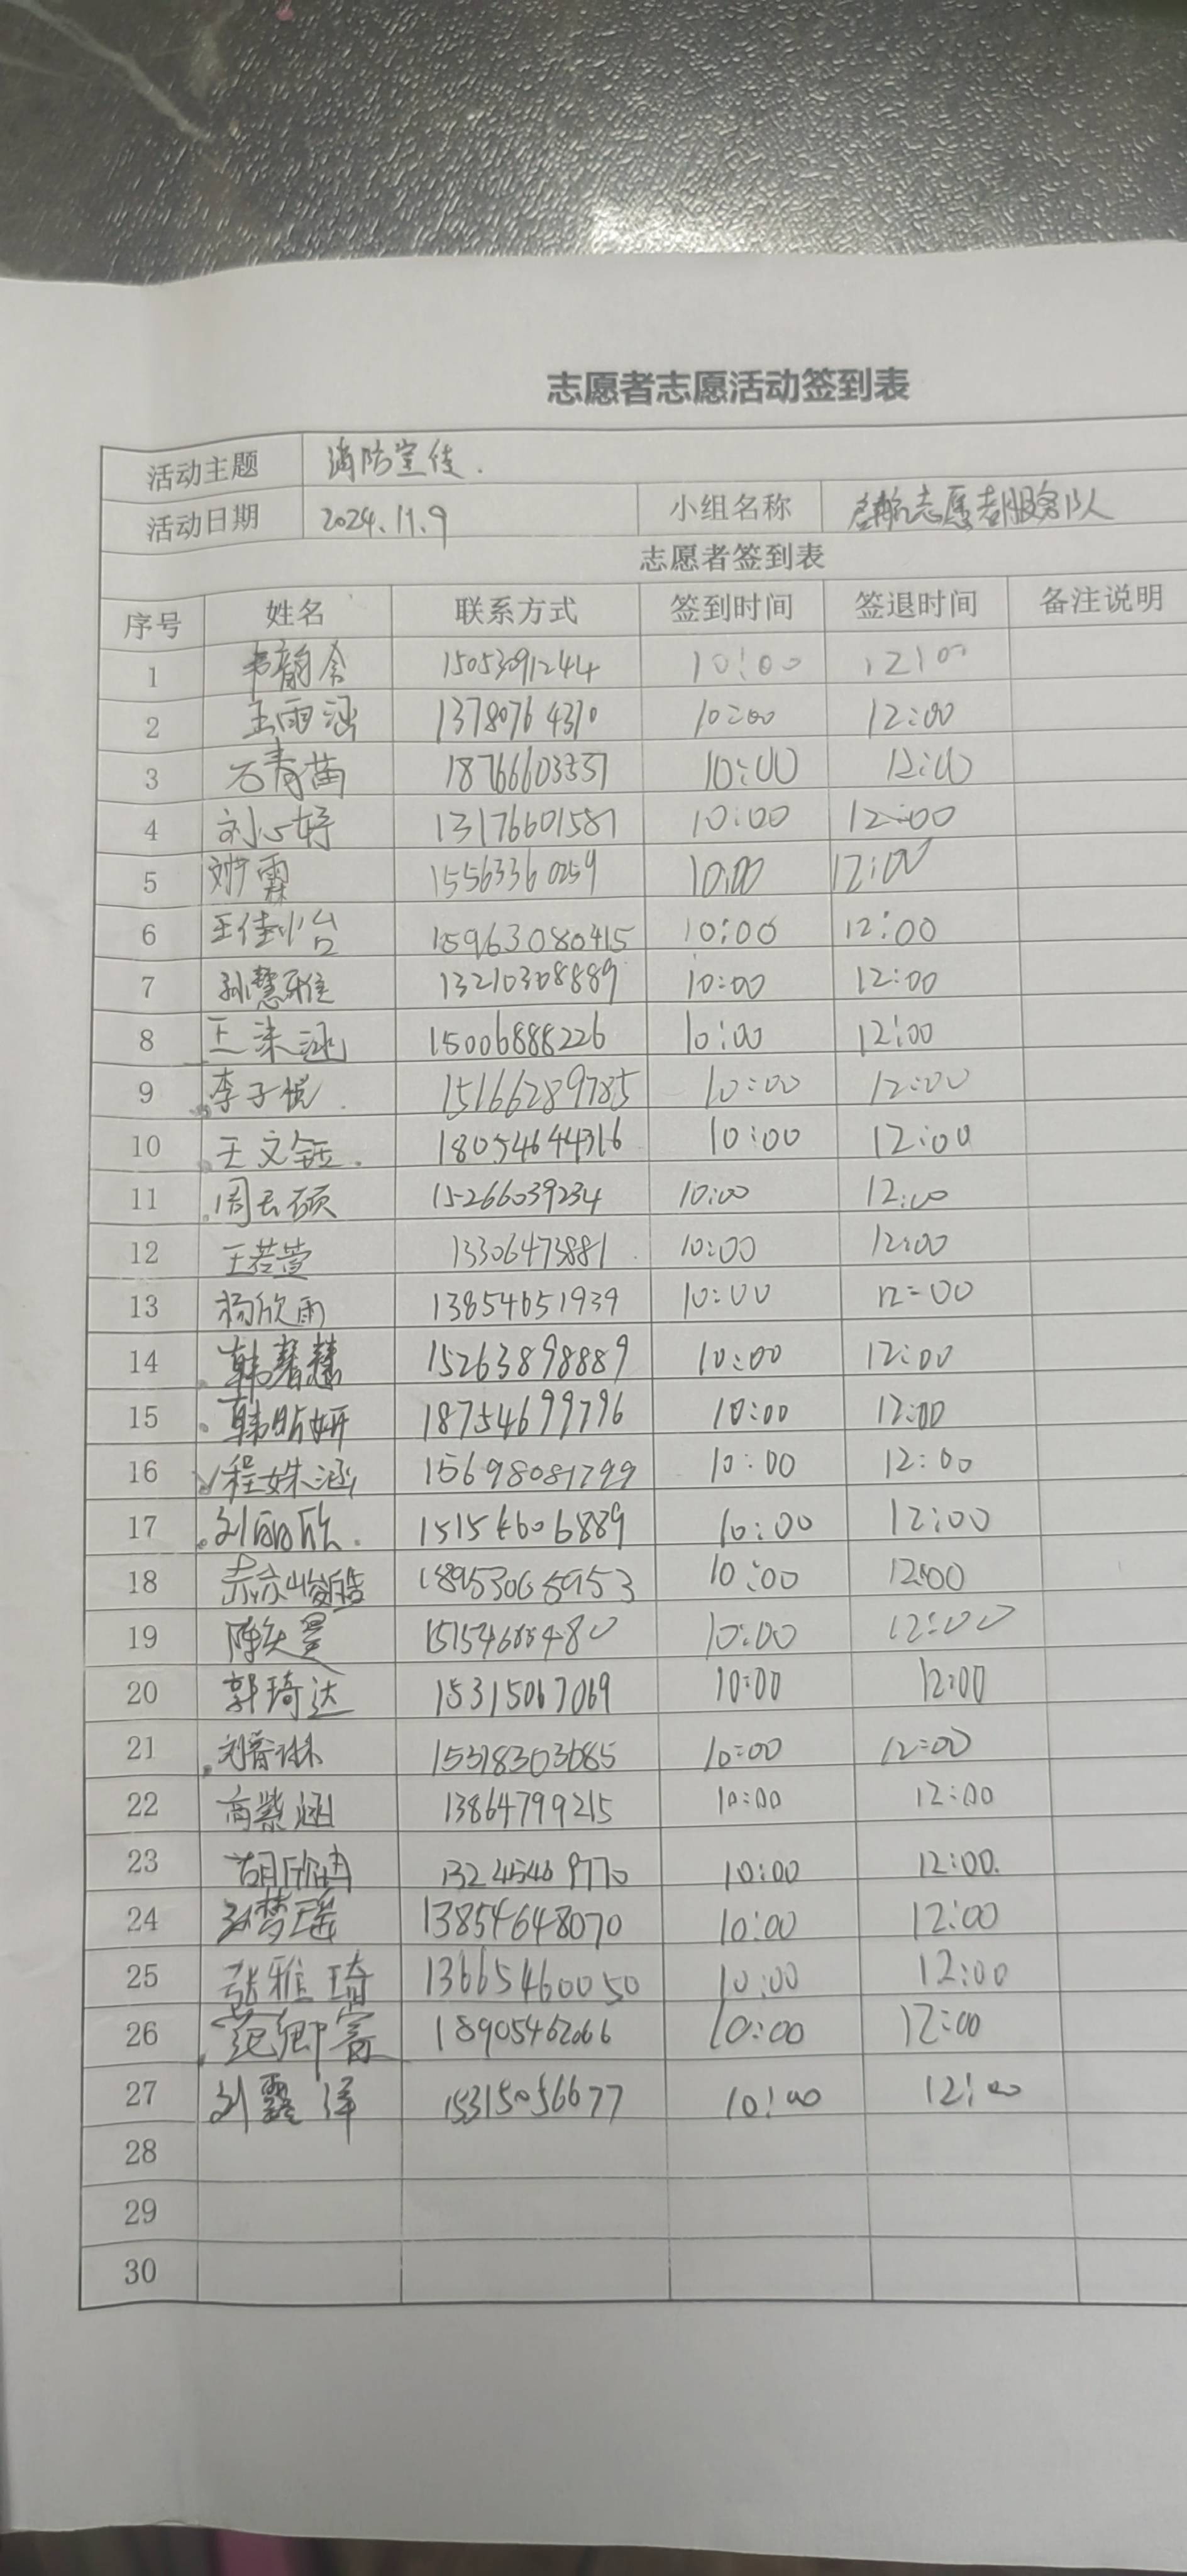 志愿者志愿活动签到表
活动主题 消防宣传.
活动日期 2024.11.9 小组名称 启航志愿者服务队
志愿者签到表
序号 姓名 联系方式 签到时间 签退时间 备注说明
1 15053091244 10:00 12:00
2 王雨涵 13780764310 10:00 12:00
3 石青苗 18766603537 10:00 12:00
4 刘心婷 13176601587 10:00 12:00
5 刘霖 15563360259 10:00 12:00
6 王佳怡 15963080415 10:00 12:00
7 孙慧雅 13210308889 10:00 12:00
8 王涞涵 15006888226 10:00 12:00
9 李子悦 15166289785 10:00 12:00
10 王文钰. 18054644316 10:00 12:00
11 周长硕 15266039234 10:00 12:00
12 王若萱 13306473881 10:00 12:00
13 杨欣雨 13854651939 10:00 12:00
14 韩馨慧 15263898889 10:00 12:00
15 韩昕妍 18754699796 10:00 12:00
16 程姝涵 15698081799 10:00 12:00
17 刘丽欣. 15154606889 10:00 12:00
18 18953065953 10:00 12:00
19 10:00 12:00
20 郭琦达 15315067069 10:00 12:00
21 刘睿琳 15318303685 10:00 12:00
22 高紫涵 13864799215 10:00 12:00
23 胡欣冉 13245469770 10:00 12:00.
24 孙梦瑶 13854648070 10:00 12:00
25 张雅琦 13665460050 10:00 12:00
26 范卿睿 18905462066 10:00 12:00
27 刘露洋 15315056677 10:00 12:00
28
29
30